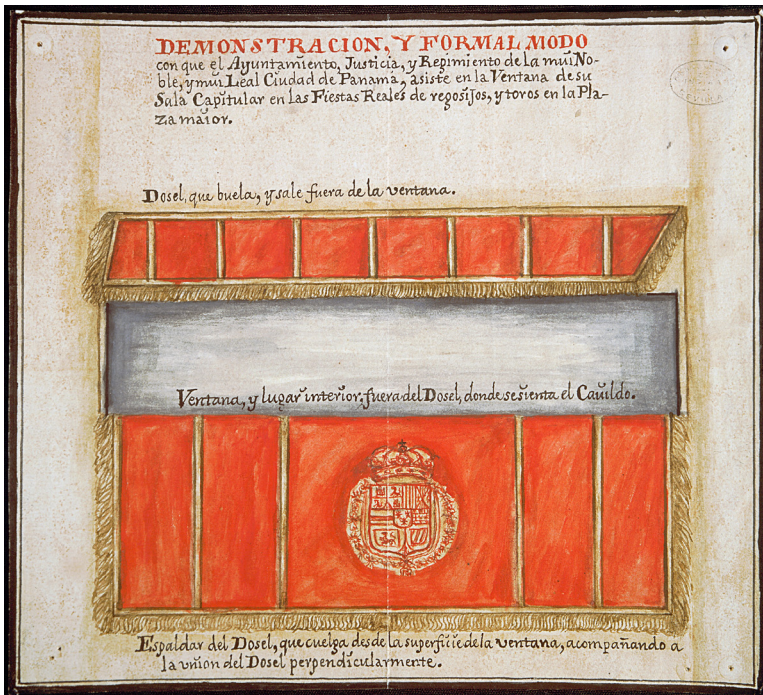 DEMONSTRACION, Y FORMAL MODO
con que el Ayuntamiento, Justicia, y Regimiento de la mui No-
ble, y mui Leal Ciudad de Panama, asiste en la Ventana de su
Sala Capitular en las Fiestas Reales de regosijos, y toros en la Pla-
za maior.
Dosel, que buela, y sale fuera de la ventana.
Ventana, y lugar interior, fuera del Dosel, donde se sienta el Cavildo.
Espaldar del Dosel, que cuelga desde la superficie de la ventana, acompañando a
la union del Dosel perpendicularmente.
SEVILLA